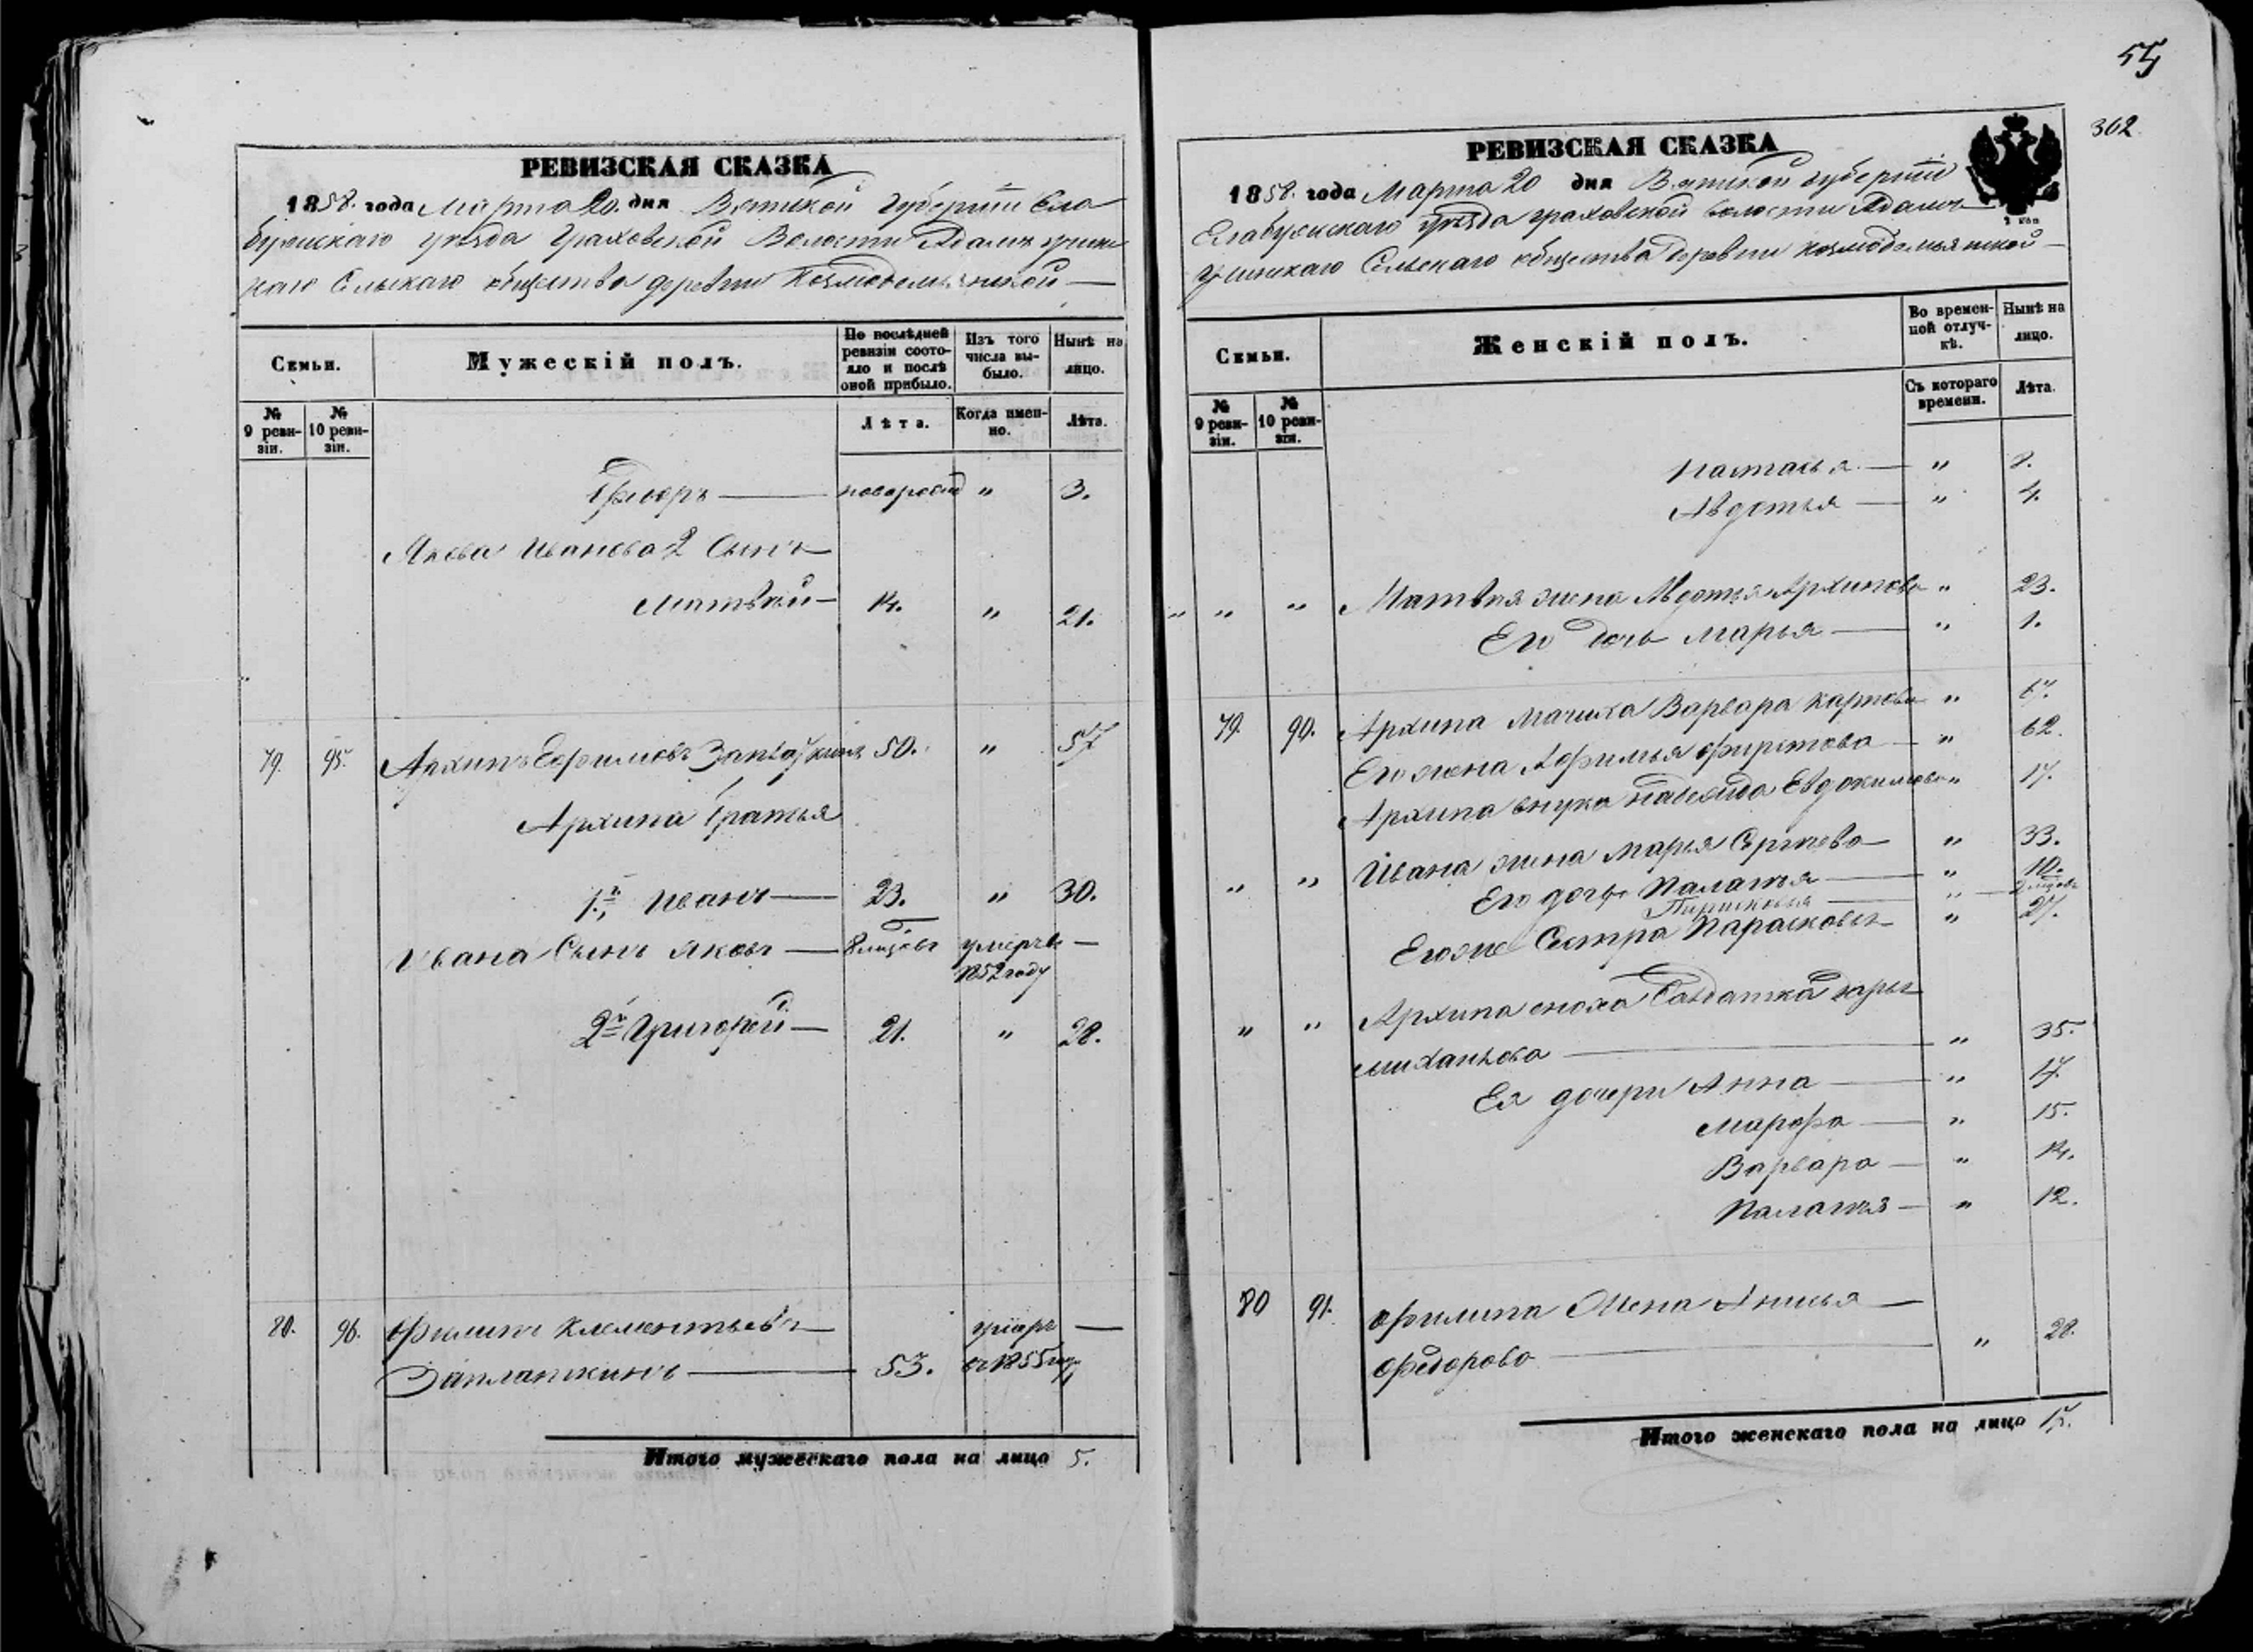 РЕВИЗСКАЯ СКАЗКА
1858. года Марта 20. дня Вятской Губерніи Ела
бужскаго уѣзда Граховской Волости Адамъ учин
скаго Сельскаго общества деревни Козмодемьянской —
Семьи.
Мужескій полъ.
По послѣдней ревизіи состояло и послѣ оной прибыло.
Изъ того числа выбыло.
Нынѣ на лицо.
№ 9 ревизіи.
№ 10 ревизіи.
Лѣта.
Когда именно.
Лѣта.
Ѳедоръ — новорожд " 3.
Якова Иванова 2 Сынъ
Матвѣй — 14. " 21.
79. 95. Архипъ Ефимовъ 50. " 57
Архипа братья
1.й Иванъ — 23. " 30.
Ивана Сынъ Яковъ — 8 мѣсяцовъ умеръ въ —
1852 году
2й Григорей — 21. " 28.
80. 96. Филипъ Клементьевъ умеръ —
Заплаткинъ — 53. въ 1855 году
Итого мужескаго пола на лицо 5.
55
362
РЕВИЗСКАЯ СКАЗКА
1858. года Марта 20 дня Вятской губерніи
Елабужскаго уѣзда граховской волости Адамъ
учинскаго Сельскаго общества деревни козмодемьянской —
Семьи.
Женскій полъ.
Во временной отлучкѣ.
Нынѣ на лицо.
№ 9 ревизіи.
№ 10 ревизіи.
Съ котораго времени.
Лѣта.
Наталья — " 8.
Авдотья — " 4.
" " " Матвѣя жена Авдотья Архипова " 23.
Его дочь Марья — " 1.
79. 90. Архипа мачиха Варвара Карпова "
Его жена Афимья — " 62.
Архипа внука надежда Евдокимова " 17.
" " Ивана жена Марья Сергѣева — " 33.
Его дочь Палагья — " 10.
Его же Сестра Парасковья " 27.
" " Архипа сноха Солдатка Дарья
михайлова — " 35.
Ея дочери Анна — " 17.
Марфа — " 15.
Варвара — " 14.
Палагья — " 12.
80 91. Филипа Жена Анисья —
Федорова — " 28.
Итого женскаго пола на лицо 17.